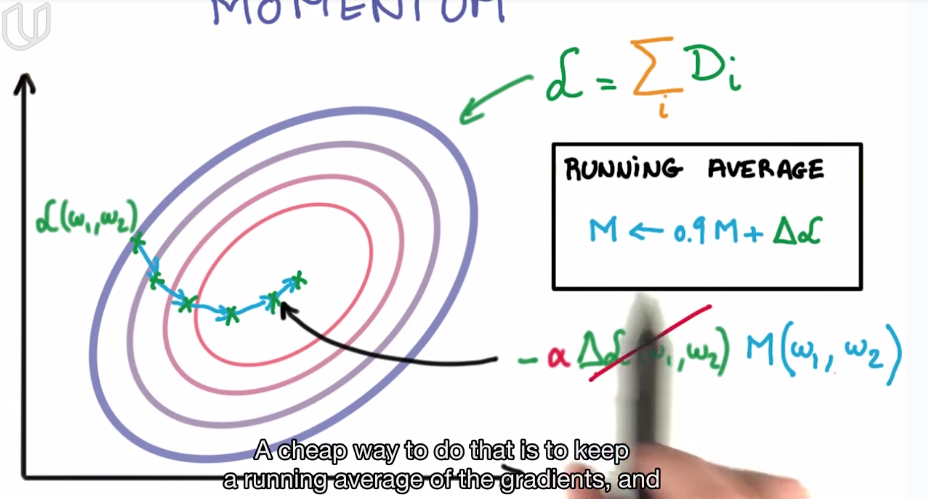 MOMENTUM
ℒ = Σ Di
i
RUNNING AVERAGE
M ← 0.9 M + Δℒ
ℒ(ω₁,ω₂)
- α Δℒ(ω₁,ω₂) M(ω₁, ω₂)
A cheap way to do that is to keep
a running average of the gradients, and